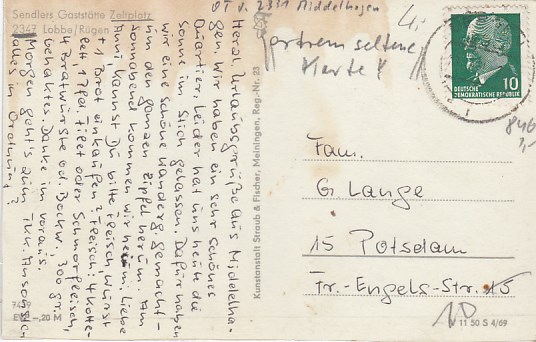 Sendlers Gaststätte Zeltplatz
2347 Lobbe/Rügen
OT v. 2311 Middelhagen
extrem seltene
Karte!
Herzl. Urlaubsgrüße aus Middelha-
gen. Wir haben ein sehr schönes
Quartier, leider hat uns heute die
Sonne im Stich gelassen. Dafür haben
wir eine schöne Wanderg. gemacht –
um den ganzen Zipfel herum. Am
Sonnabend kommen wir heim. Liebe
Anni, kannst Du bitte Fleisch, Wurst
u. Brot einkaufen? Fleisch: 4 Kotte-
lett, 1 Pa. Filet oder Schmorfleisch,
4 Bratwürste od. Bockw. 300 gr.
Gehacktes. Danke im voraus.
Morgen geht's zum FKK. Ansonsten
alles in Ordnung!
Kunstanstalt Straub & Fischer, Meiningen, Reg.-Nr. 23
10
DEUTSCHE
DEMOKRATISCHE REPUBLIK
Fam.
G. Lange
15 Potsdam
Fr.-Engels-Str. 15
EVP -,20 M
V 11 50 S 4/69